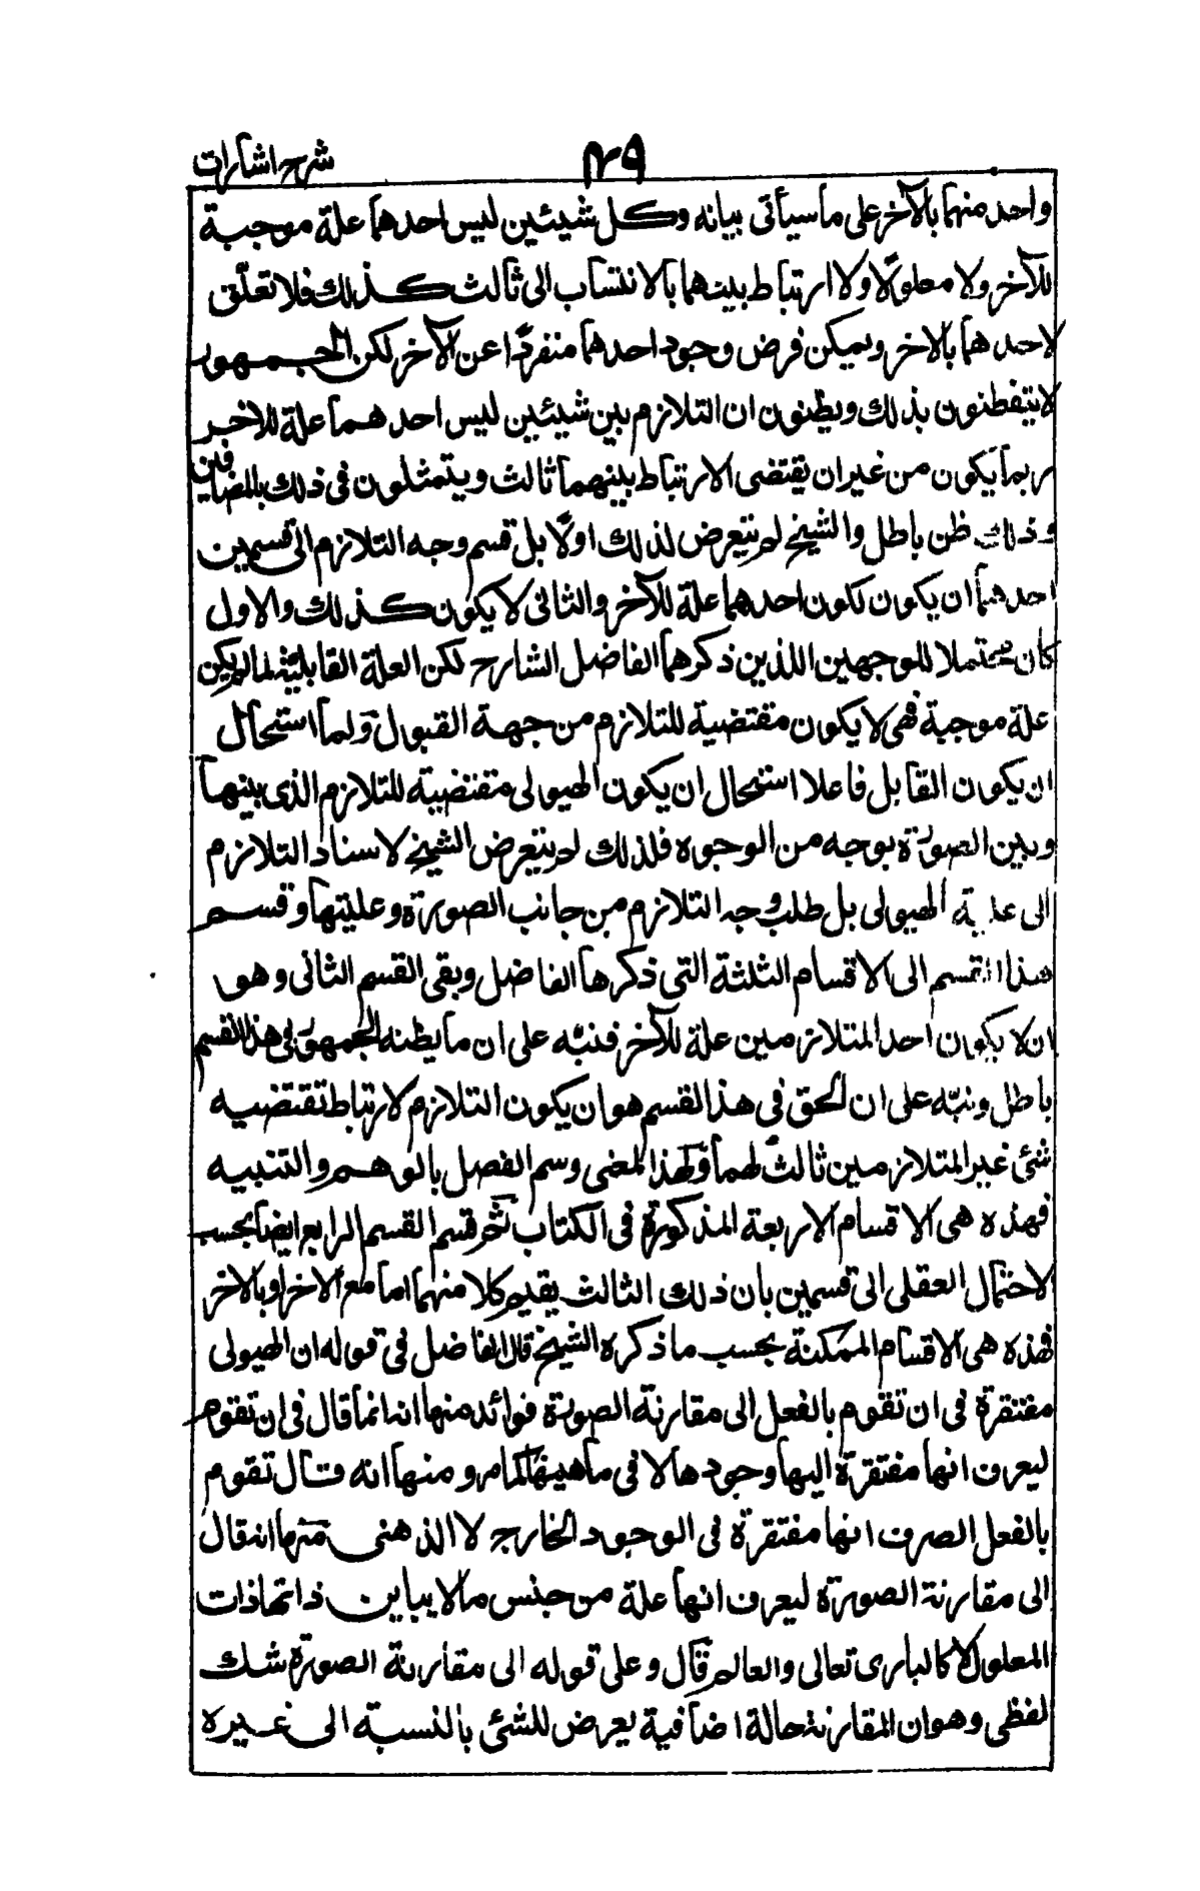 شرح اشارات
واحد منهما بالآخر على ما سيأتى بيانه وكل شيئين ليس احدهما علة موجبة
للآخر ولا معلولًا ولا ارتباط بينهما بالانتساب الى ثالث كذلك فلا تعلّق
لاحدهما بالاخر ويمكن فرض وجود احدهما منفردًا عن الآخر لكن الجمهور
لا يتفطنون بذلك ويظنون ان التلازم بين شيئين ليس احدهما علة للاخر
ربما يكون من غير ان يقتضى الارتباط بينهما ثالث ويتمثلون فى ذلك بالمضافين
وذلك ظن باطل والشيخ لم يتعرض لذلك اولًا بل قسم وجه التلازم الى قسمين
احدهما ان يكون لكون احدهما علة للآخر والثانى لا يكون كذلك والاول
كان محتملا للوجهين اللذين ذكرهما الفاضل الشارح لكن العلة القابلية لما لم يكن
علة موجبة فهى لا يكون مقتضية للتلازم من جهة القبول ولما استحال
ان يكون القابل فاعلا استحال ان يكون الهيولى مقتضية للتلازم الذى بينها
وبين الصورة بوجه من الوجوه فلذلك لم يتعرض الشيخ لاسناد التلازم
الى علية الهيولى بل طلب وجه التلازم من جانب الصورة وعليتها وقسم
هذا القسم الى الاقسام الثلثة التى ذكرها الفاضل وبقى القسم الثانى وهو
ان لا يكون احد المتلازمين علة للآخر فنبّه على ان ما يظنه الجمهور فى هذا القسم
باطل ونبّه على ان الحق فى هذا القسم هو ان يكون التلازم لارتباط تقتضيه
شئ غير المتلازمين ثالث لهما ولهذا المعنى وسم الفصل بالوهم والتنبيه
فهذه هى الاقسام الاربعة المذكورة فى الكتاب ثم قسم القسم الرابع ايضا بحسب
الاحتمال العقلى الى قسمين بان ذلك الثالث يقيم كلا منهما اما مع الاخر او بالاخر
فهذه هى الاقسام الممكنة بحسب ما ذكره الشيخ قال الفاضل فى قوله ان الهيولى
مفتقرة فى ان تقوم بالفعل الى مقارنة الصورة فوائد منها انه انما قال فى ان تقوم
ليعرف انها مفتقرة اليها وجودها لا فى ماهيتها كما مر ومنها انه قال تقوم
بالفعل الصرف انها مفتقرة فى الوجود الخارج لا الذهنى منها انه قال
الى مقارنة الصورة ليعرف انها علة من جنس ما لا يباين ذاتها ذات
المعلول لا كالبارى تعالى والعالم قال وعلى قوله الى مقارنة الصورة شك
لفظى وهو ان المقارنة حالة اضافية يعرض للشئ بالنسبة الى غيره